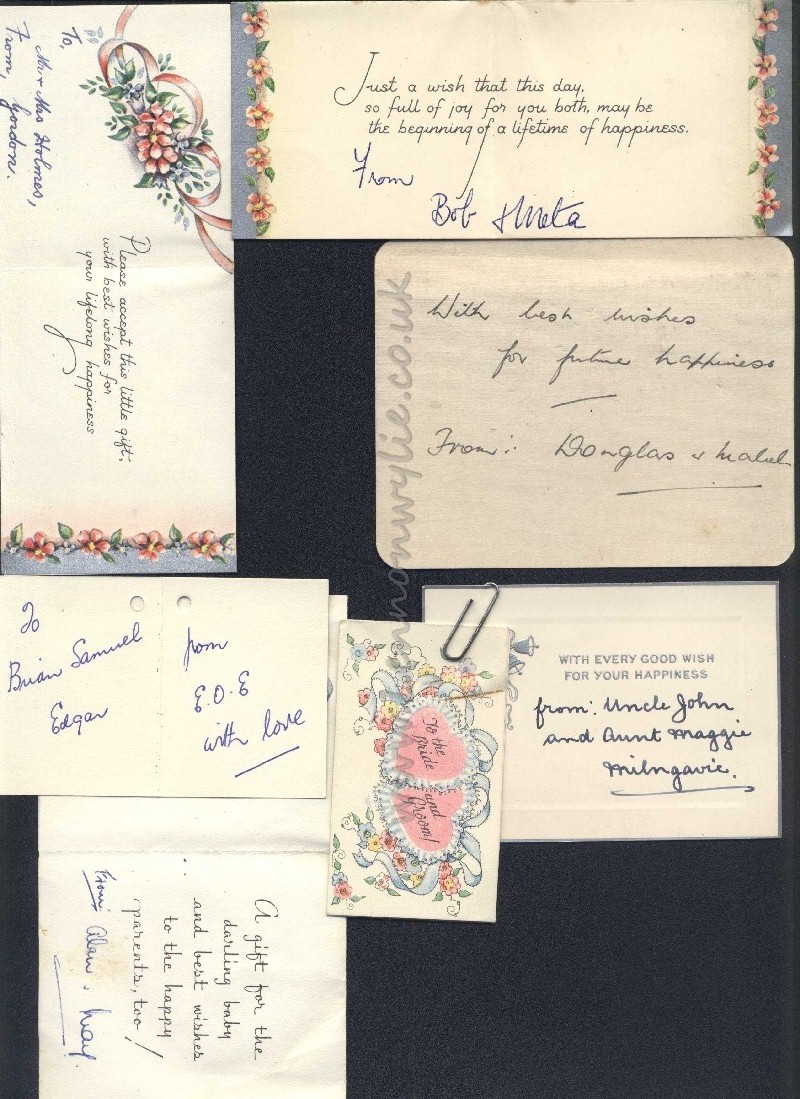 To,
Mr & Mrs Holmes,
From, Gordon.
Please accept this little gift,
with best wishes for
your lifelong happiness
Just a wish that this day,
so full of joy for you both, may be
the beginning of a lifetime of happiness.
From
Bob & Meta
With best wishes
for future happiness
From: Douglas & Mabel
To
Brian Samuel
Edgar
from
E.O.E
with love
To the
Bride
and
Groom!
WITH EVERY GOOD WISH
FOR YOUR HAPPINESS
from: Uncle John
and Aunt Maggie
Milngavie.
A gift for the
darling baby
and best wishes
to the happy
parents, too!
From: Alan &
nonwylie.co.uk